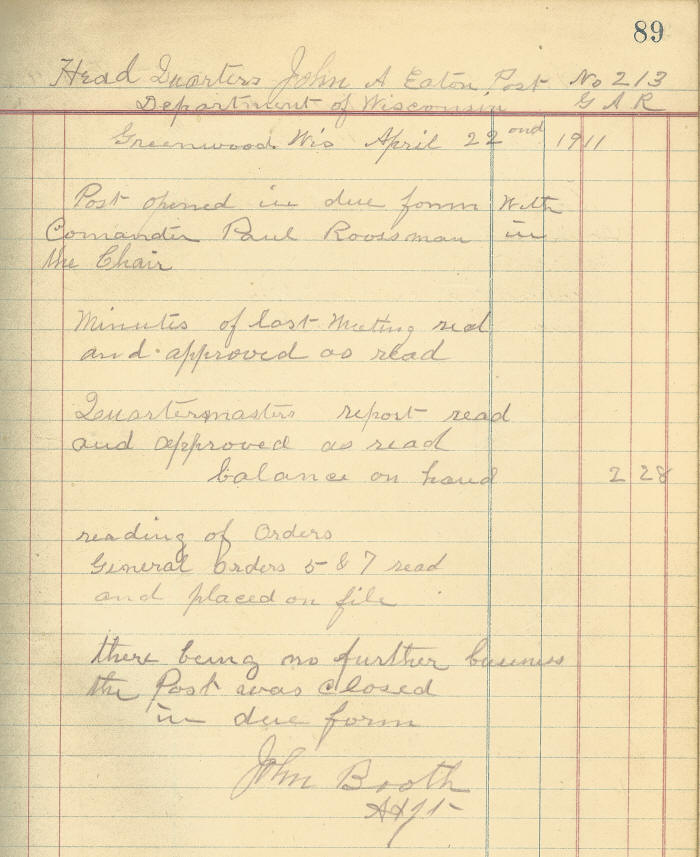 89
Head Quarters John A Eaton Post No 213
Department of Wisconsin G A R
Greenwood Wis April 22ond 1911
Post opened in due form With
Comander Paul Roossman in
the Chair
Minutes of last Meeting red
and approved as read
Quartermasters report read
and approved as read
balance on hand 2 28
reading of Orders
General Orders 5 & 7 read
and placed on file
there being no further business
the Post was closed
in due form
John Booth
Adjt